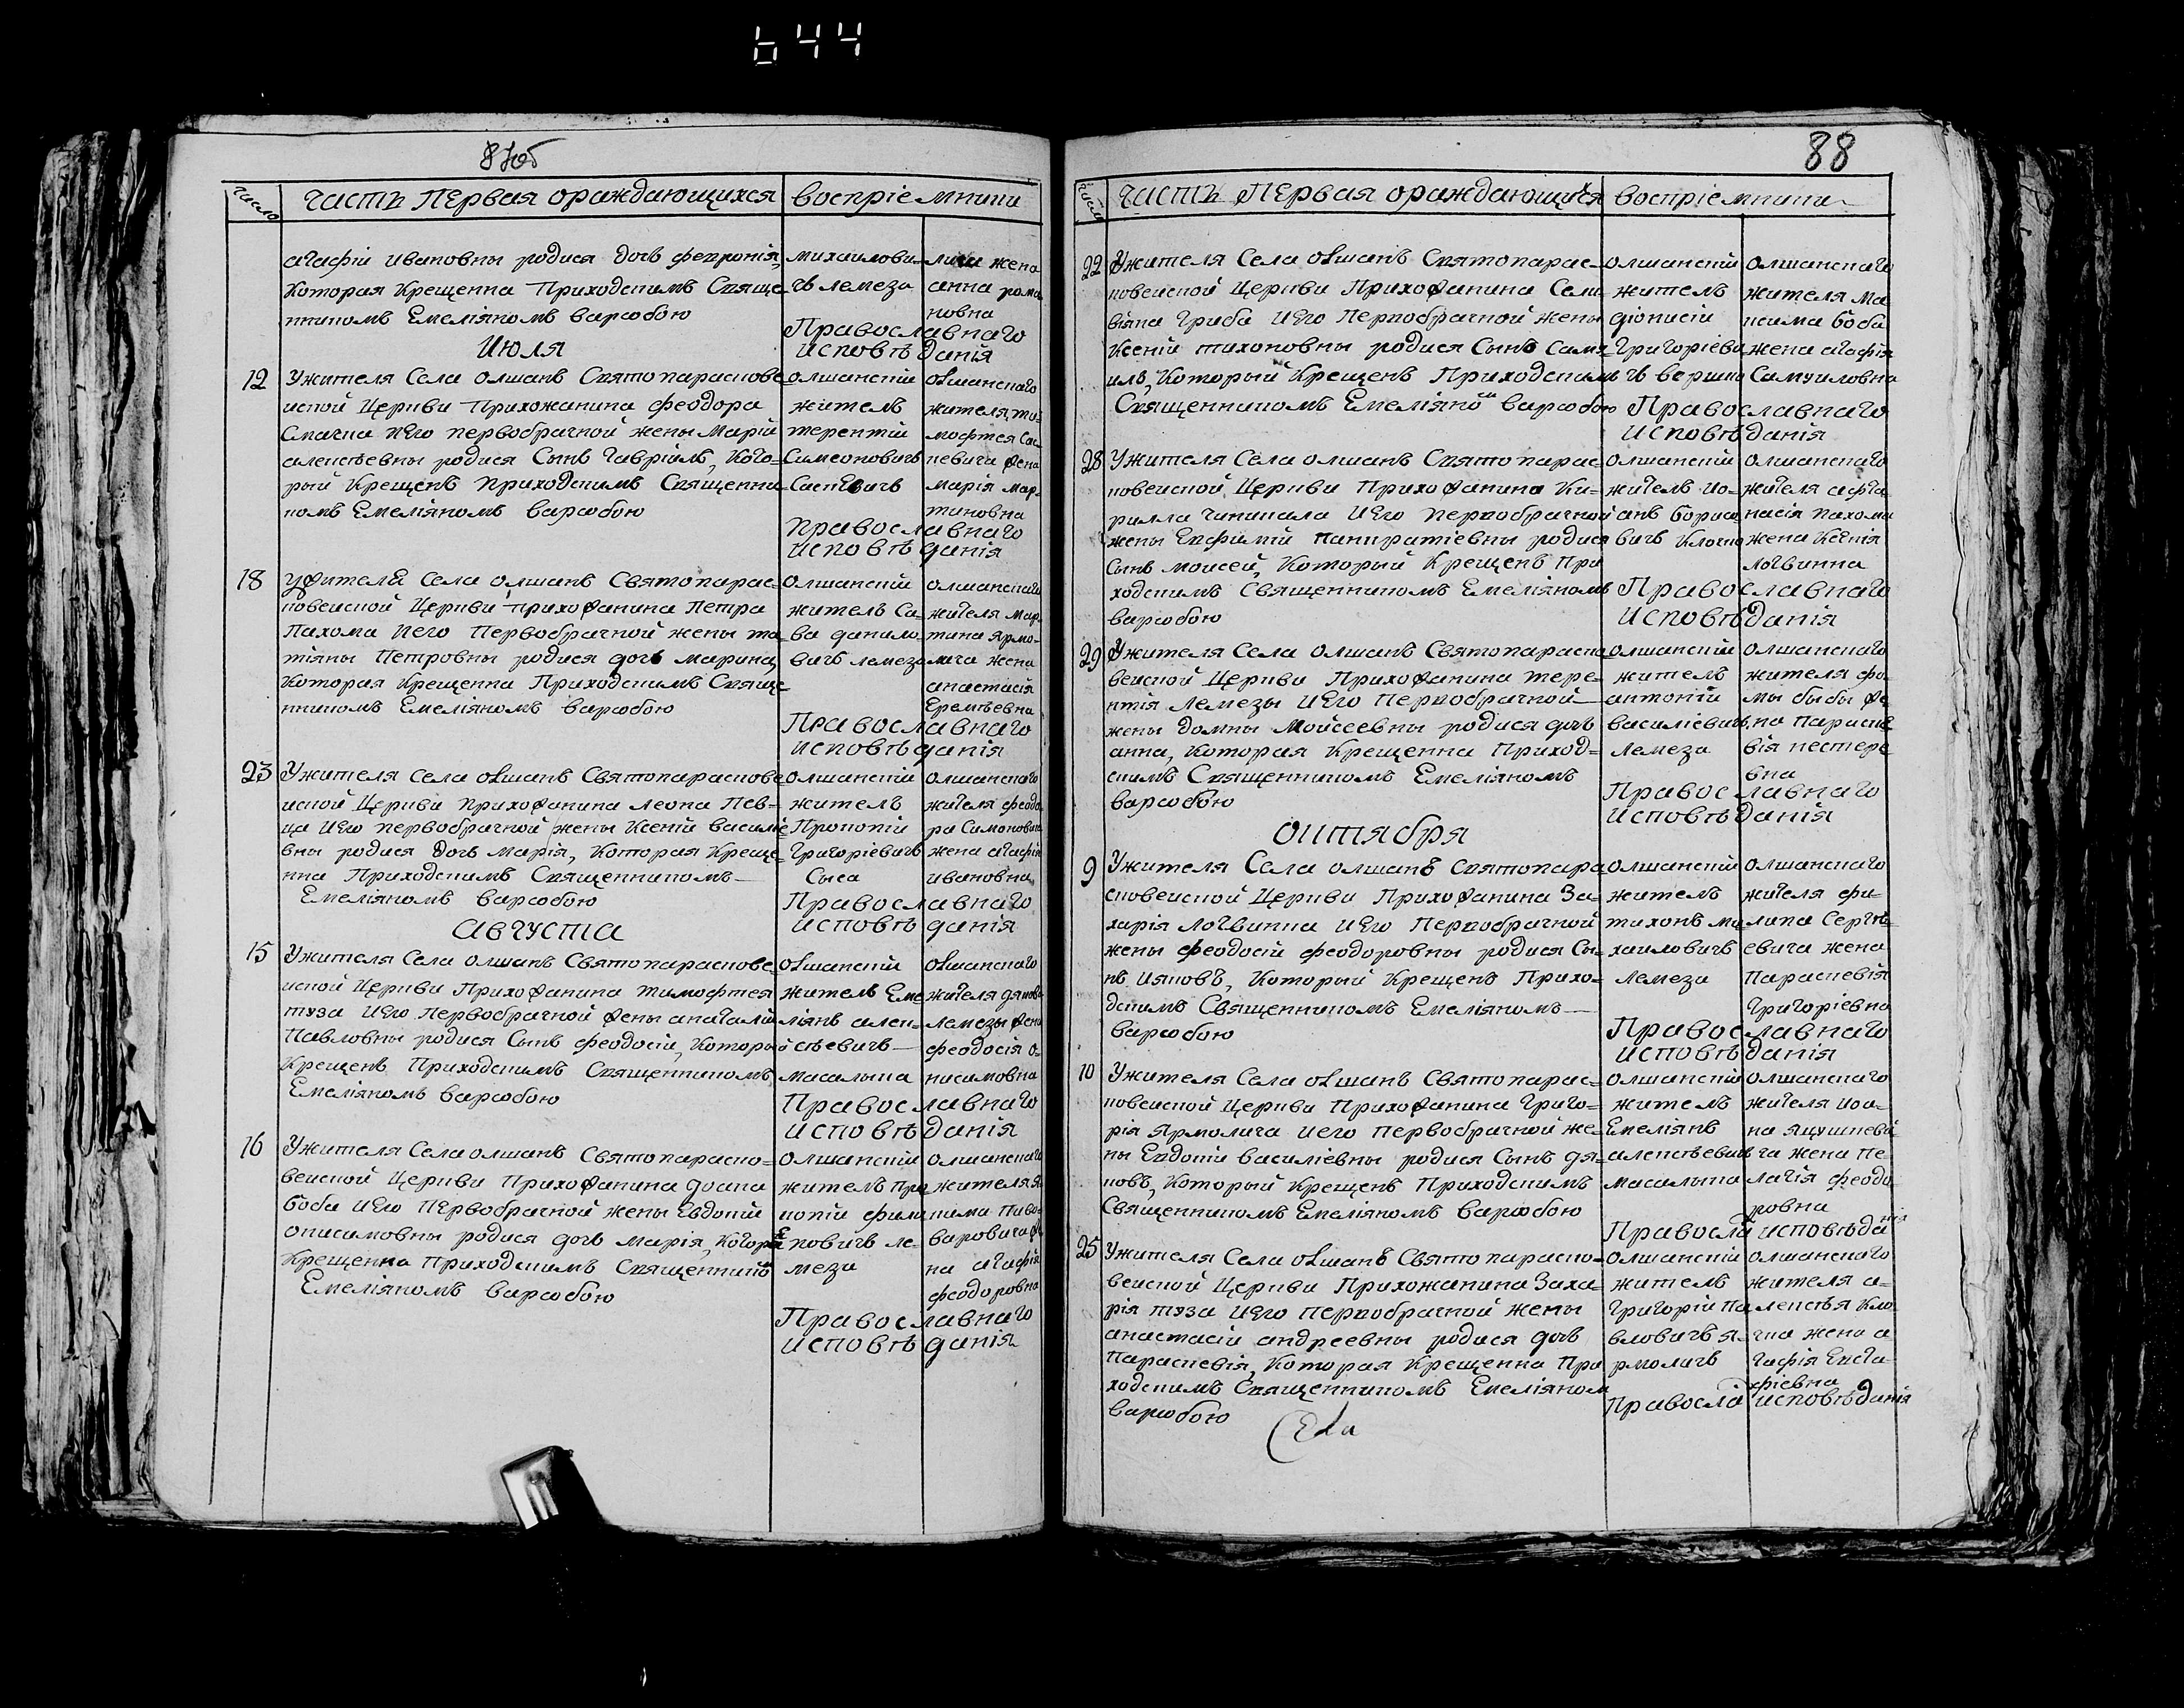 644
87об
число
часть первая ораждающихся
воспріемники
агафіи ивановны родися дочь февронія,
которая крещенна приходскимъ свяще
нникомъ емеліяномъ варавою
михаилови
чъ лемеза
жена
анна рома
новна
православнаго
исповѣданія
июля
12
Ужителя села олшанъ святопараскове
иской церкви прихожанина феодора
его первобрачной жены маріи
алексѣевны родися сынъ гавріилъ, кото
рый крещенъ приходскимъ священни
комъ емеліяномъ варавою
олшанскій
житель
терентій
симеоновичъ
олшанскаго
жителя ти
мофтея
жена
марія мар
тиновна
православнаго
исповѣданія
18
ужителя села олшанъ святопарас
ковеиской церкви прихожанина петра
пахома иего первобрачной жены та
тіяны петровны родися дочь марина,
которая крещенна приходскимъ свяще
нникомъ емеліяномъ варавою
олшанскій
житель са
ва данило
вичъ лемеза
олшанскаго
жителя мар
тина ярмо
лича жена
анастасія
еремѣевна
православнаго
исповѣданія
23
Ужителя села олшанъ святопараскове
иской церкви прихожанина леона пев
ца иего первобрачной жены ксеніи василіе
вны родися дочь марія, которая креще
нна приходскимъ священникомъ
емеліяномъ варавою
олшанскій
житель
прокопій
григоріевичъ
сыса
олшанскаго
жителя феодо
ра симоновича
жена агафія
ивановна
православнаго
исповѣданія
августа
15
Ужителя села олшанъ святопараскове
иской церкви прихожанина тимофтея
туза иего первобрачной жены
павловны родися сынъ феодосій, которы
крещенъ приходскимъ священникомъ
емеліяномъ варавою
олшанскій
житель еме
ліянъ алек
сѣевичъ
масалыка
олшанскаго
жителя якова
лемезы жена
феодосія о
нисимовна
православнаго
исповѣданія
16
Ужителя села олшанъ святопараско
веиской церкви прихожанина
боби иего первобрачной жены евдокіи
онисимовны родися дочь марія, котора
крещенна приходскимъ священнико
емеліяномъ варавою
олшанскій
житель про
копій фили
повичъ ле
меза
олшанскаго
жителя я
кима пиво
варовича же
на агафія
феодоровна
православнаго
исповѣданія
88
число
часть первая ораждающихся
воспріемники
22
Ужителя села олшанъ святопарас
ковеиской церкви прихожанина сели
віяна гриба иего первобрачной жены
ксеніи тихоновны родися сынъ само
илъ, который крещенъ приходскимъ
священникомъ емеліяно варавою
олшанскій
житель
діонисій
григоріеви
чъ
олшанскаго
жителя ма
ксима боби
жена агафія
самуиловна
православнаго
исповѣданія
28
Ужителя села олшанъ святопарас
ковеиской церкви прихожанина ки
рилла чикилала иего первобрачной
жены евфиміи панкратіевны родися
сынъ моисей, который крещенъ при
ходскимъ священникомъ емеліяномъ
варавою
олшанскій
житель ио
анъ борисо
вичъ
олшанскаго
жителя афта
насія пахома
жена ксенія
логвинна
православнаго
исповѣданія
29
Ужителя села олшанъ святопараско
веиской церкви прихожанина тере
нтія лемезы иего первобрачной
жены домны мойсеевны родися дочь
анна, которая крещенна приход
скимъ священникомъ емеліяномъ
варавою
олшанскій
житель
антоній
василіевичъ
лемеза
олшанскаго
жителя фо
мы быбы же
на параске
вія нестере
вна
православнаго
исповѣданія
октября
9
Ужителя села олшанъ святопара
сковеиской церкви прихожанина за
харія логвинна иего первобрачной
жены феодосіи феодоровны родися сы
нъ ияковъ, который крещенъ прихо
дскимъ священникомъ емеліяномъ
варавою
олшанскій
житель
тихонъ ми
хаиловичъ
лемеза
олшанскаго
жителя фи
липа сергѣ
евича жена
параскевія
григоріевна
православнаго
исповѣданія
10
Ужителя села олшанъ святопарас
ковеиской церкви прихожанина григо
рія ярмолича иего первобрачной же
ны евдокіи василіевны родися сынъ ия
ковъ, который крещенъ приходскимъ
священникомъ емеліяномъ варавою
олшанскій
житель
емеліянъ
алексѣевичъ
масалыка
олшанскаго
жителя иоа
на
жена пе
лагія феодо
ровна
правосла исповѣданія
25
Ужителя села олшанъ святопараско
веиской церкви прихожанина заха
рія туза иего первобрачной жены
анастасіи андреевны родися дочь
параскевія, которая крещенна при
ходскимъ священникомъ емеліяном
варавою
олшанскій
житель
григорій па
вловичъ я
рмоличъ
олшанскаго
жителя а
лексѣя
жена а
гафія евста
фіевна
правосла исповѣданія